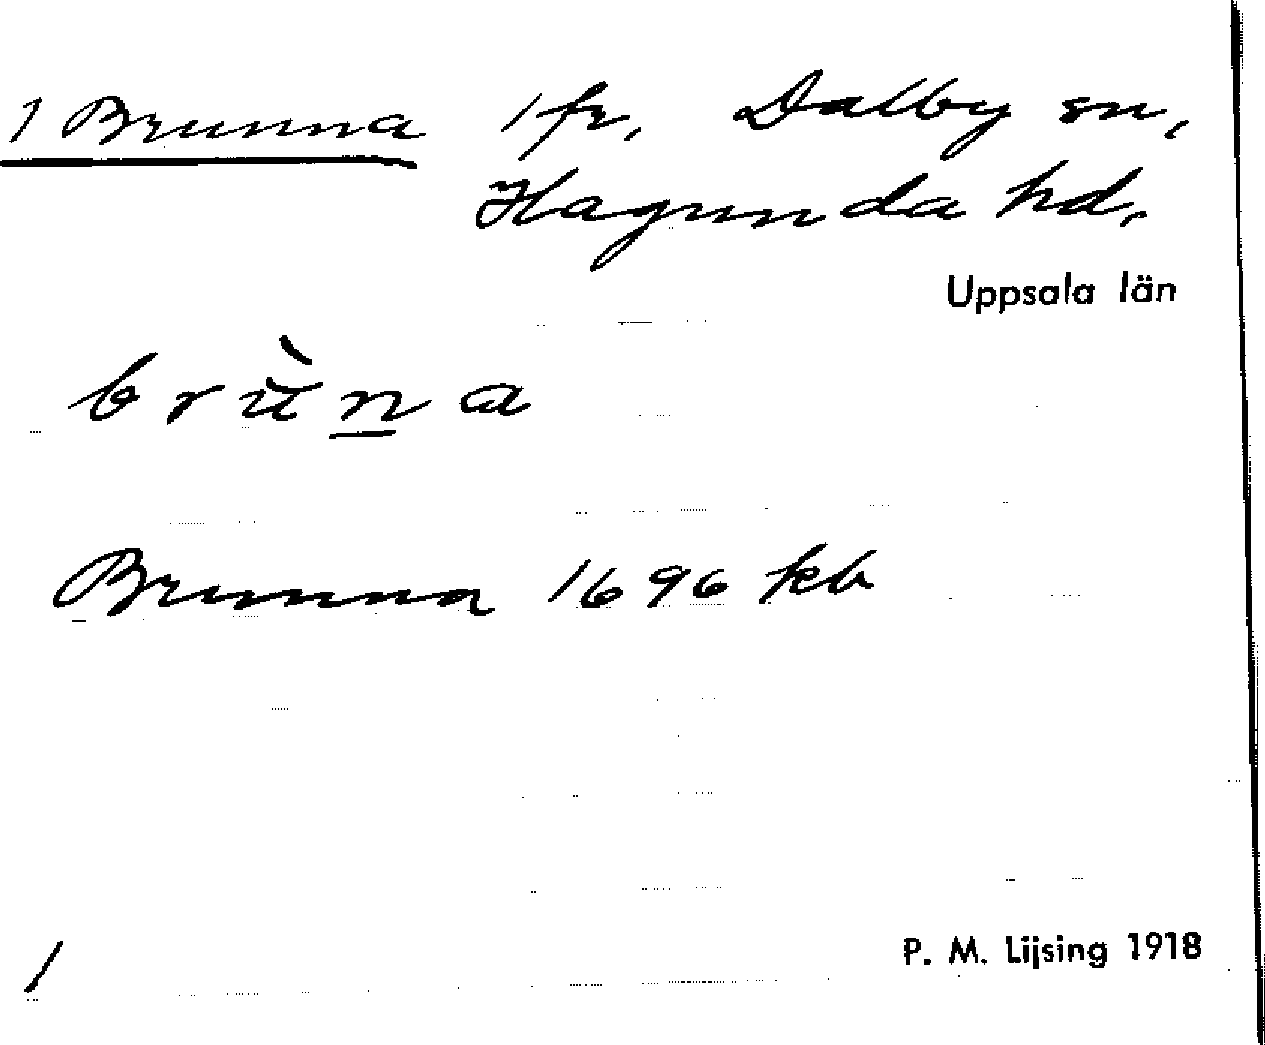 1 Brunna 1 fr, Dalby sn,
Hagunda hd,
Uppsala län
brùna
Brunna 1696 kb
1
P. M. Lijsing 1918